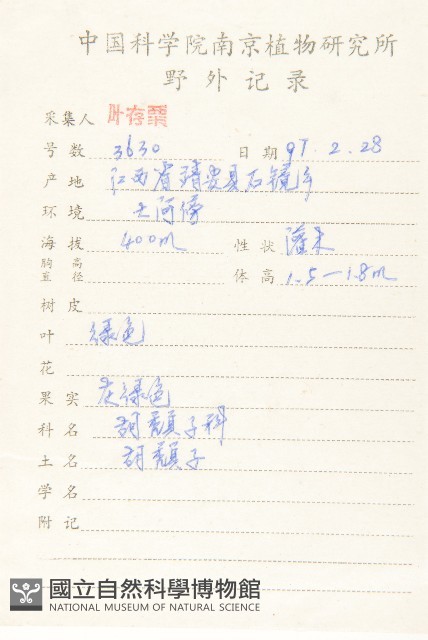 中国科学院南京植物研究所
野外记录
采集人 叶存粟
号数 3630 日期 97.2.28
产地 江西省靖安县石镜乡
环境 土河傍
海拔 400m 性状 灌木
胸高直径 体高 1.5—1.8m
树皮
叶 绿色
花
果实 灰绿色
科名 胡颓子科
土名 胡颓子
学名
附记
國立自然科學博物館
NATIONAL MUSEUM OF NATURAL SCIENCE